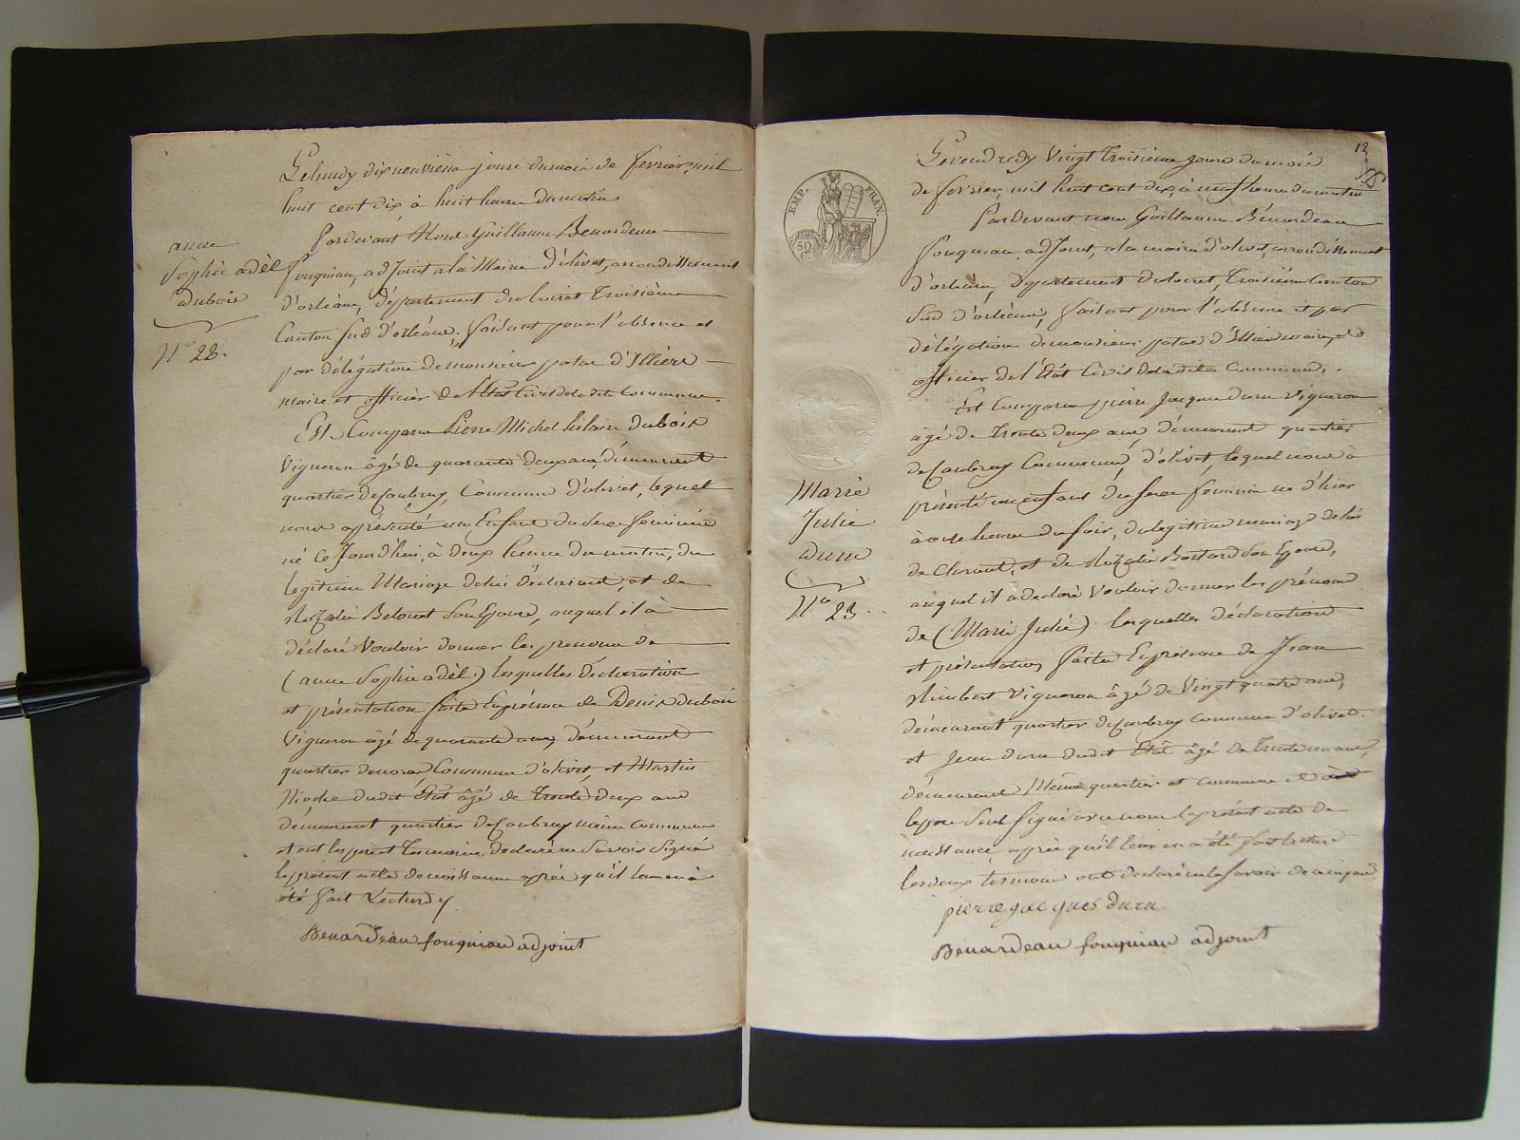 Le lundy dix neuvième jour du mois de fevrier mil
huit cent dix à huit heure du matin
Pardevant Nous Guillaume Benardeau
fouqueau, adjoint a la Mairie d'olivet, arrondissement
d'orléans, département du loiret Troisième
Canton sud d'orléans, faisant pour l'absence et
par délégation de monsieur patas d'Illiers
maire et officier de l'état Civil de la dite Commune.
Est Comparu Pierre Michel hilaire dubois
Vigneron âgé de quarante deux ans, demeurant
quartier de Caubray, Commune d'olivet, lequel
nous a présenté un Enfant du Sexe féminin
né Ce Jourd'hui à deux heures du matin, du
legitime Mariage de lui déclarant, et de
Son Epouse, auquel il à
déclaré Vouloir donner les prenoms de
(anne Sophie adèl) lesquelles déclaration
et présentation faite En présence de Denis dubois
Vigneron âgé de quarante ans, demeurant
quartier Commune d'olivet, et Martin
dudit État âgé de Trente deux ans
demeurant quartier de Caubray même Commune
et ont les pere et Temoins déclaré ne Savoir Signé
le présent acte de naissance après qu'il leur en à
été fait Lecture
Benardeau fouqueau adjoint
anne
Sophie adèl
dubois
N° 22.
12
Le vendredy Vingt Troisieme jour du mois
de fevrier mil huit cent dix, à neuf heure du matin
Pardevant nous Guillaume Bénardeau
fouqueau, adjoint, a la mairie d'olivet, arrondissement
d'orléans, département du loiret, Troisième Canton
Sud d'orléans, faisant pour l'absence et par
délégation de monsieur patas d'Illiers maire et
officier de l'État Civil de la dite Commune.
Est Comparu pierre Jacques duru Vigneron
âgé de Trente deux ans demeurant quartier
de Caubray Commune d'olivet, lequel nous à
présenté un enfant du Sexe feminin né d'hier
à onze heure du soir, du legitime mariage de lui
déclarant, et de Rozalie Son Epouse,
auquel il à déclaré Vouloir donner les prénoms
de (Marie Julie) lesquelles déclaration
et présentation faite En présence de Jean
Rimbert Vigneron âgé de Vingt quatre ans,
demeurant quartier de Caubray Commune d'olivet.
et Jean duru dudit État âgé de Trente un ans,
demeurant Même quartier et commune et à
le pere Seul Signé avec nous le présent acte de
naissance, après qu'il leur en a été fait lecture
les deux temoins ont déclaré ne le savoir de ce
pierre jacques duru
Benardeau fouqueau adjoint
EMP. FRAN.
50
Marie
Julie
duru
N° 23.